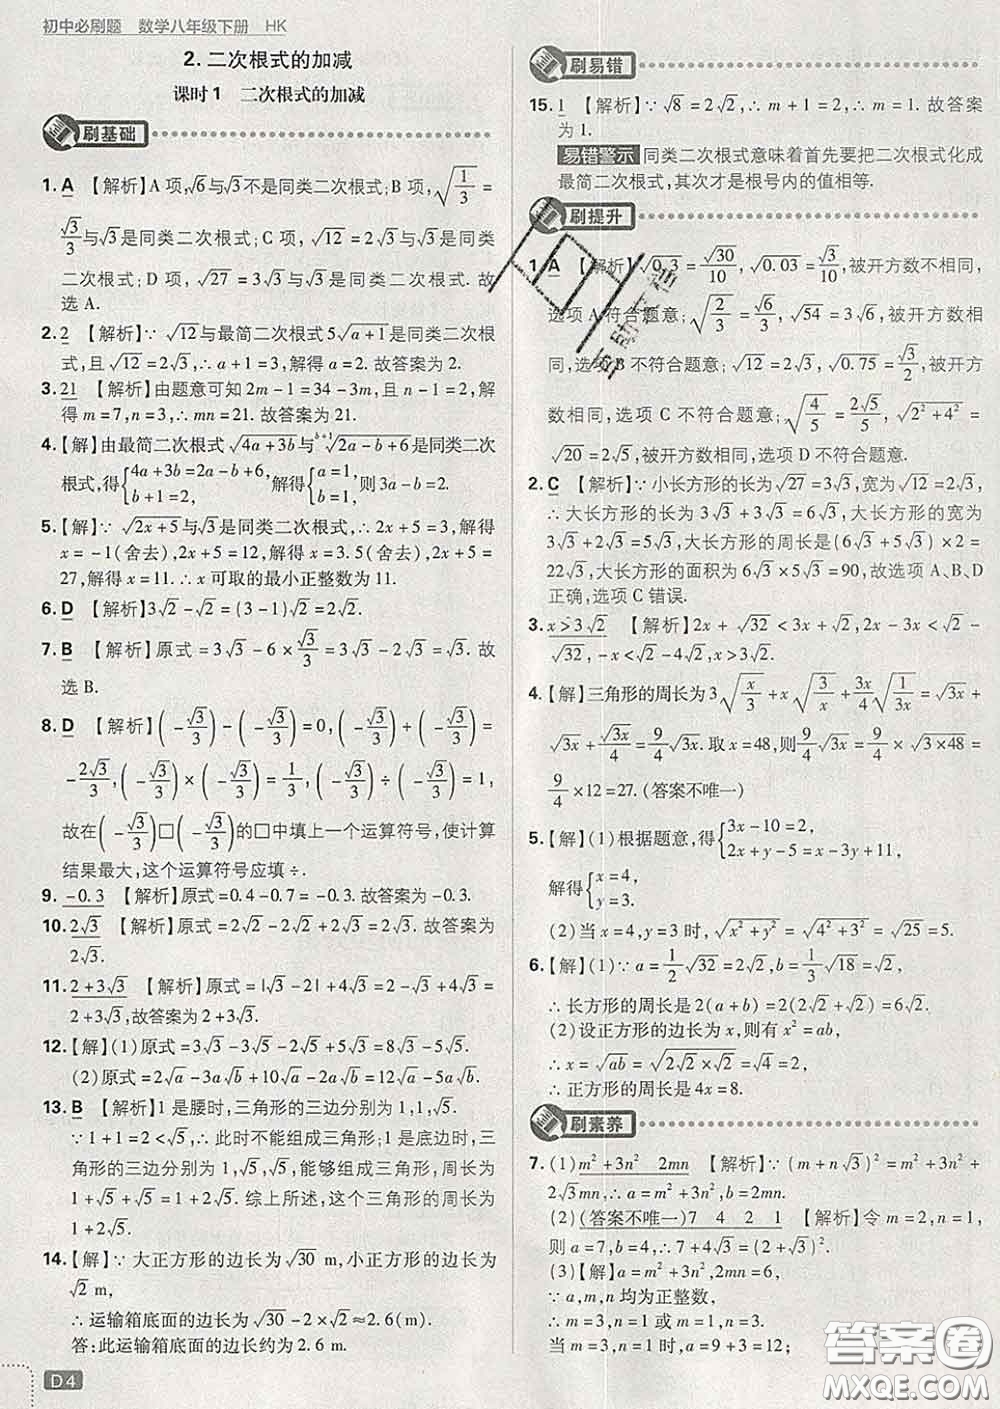 初中必刷题 数学八年级下册 HK
2. 二次根式的加减
课时1 二次根式的加减
刷基础
1. A 【解析】A项,√6与√3不是同类二次根式;B项,√(1/3) =
√3/3与√3是同类二次根式;C项,√12 = 2√3与√3是同类
二次根式;D项,√27 = 3√3与√3是同类二次根式.故
选A.
2. 2 【解析】∵ √12与最简二次根式5√(a+1)是同类二次根
式,且√12 = 2√3,∴ a+1=3,解得a=2.故答案为2.
3. 21 【解析】由题意可知2m-1=34-3m,且n-1=2,解
得m=7,n=3,∴ mn=21.故答案为21.
4.【解】由最简二次根式√(4a+3b)与 ᵇ⁺¹√(2a-b+6)是同类二次
根式,得{4a+3b=2a-b+6, b+1=2, 解得{a=1, b=1, 则3a-b=2.
5.【解】∵ √(2x+5)与√3是同类二次根式,∴ 2x+5=3,解得
x=-1(舍去),2x+5=12,解得x=3.5(舍去),2x+5=
27,解得x=11.∴ x可取的最小正整数为11.
6. D 【解析】3√2-√2=(3-1)√2=2√2.
7. B 【解析】原式=3√3-6×√3/3=3√3-2√3=√3.故
选B.
8. D 【解析】(-√3/3)-(-√3/3)=0,(-√3/3)+(-√3/3)=
-2√3/3,(-√3/3)×(-√3/3)=1/3,(-√3/3)÷(-√3/3)=1,
故在(-√3/3)□(-√3/3)的□中填上一个运算符号,使计算
结果最大,这个运算符号应填÷.
9. -0.3 【解析】原式=0.4-0.7=-0.3.故答案为-0.3.
10. 2√3 【解析】原式=2√2-2√2+2√3=2√3.故答案为
2√3.
11. 2+3√3 【解析】原式=|√3-2|+4√3=2-√3+4√3=
2+3√3,故答案为2+3√3.
12.【解】(1)原式=3√3-3√5-2√5+5√3=8√3-5√5.
(2)原式=2√a-3√b+10√a-2√b=12√a-5√b.
13. B 【解析】1是腰时,三角形的三边分别为1,1,√5.
∵ 1+1=2<√5,∴ 此时不能组成三角形;1是底边时,三
角形的三边分别为1,√5,√5,能够组成三角形,周长为
1+√5+√5=1+2√5.综上所述,这个三角形的周长为
1+2√5.
14.【解】∵ 大正方形的边长为√30 m,小正方形的边长为
√2 m,
∴ 运输箱底面的边长为√30-2×√2≈2.6(m).
答:此运输箱底面的边长约为2.6 m.
D4
刷易错
15. 1 【解析】∵ √8=2√2,∴ m+1=2,∴ m=1.故答案
为1.
易错警示 同类二次根式意味着首先要把二次根式化成
最简二次根式,其次才是根号内的值相等.
刷提升
1. A 【解析】√0.3=√30/10,√0.03=√3/10,被开方数不相同,
选项A符合题意;√(2/3)=√6/3,√54=3√6,被开方数相
同,选项B不符合题意;√12=2√3,√0.75=√3/2,被开方
数相同,选项C不符合题意;√(4/5)=2√5/5,√(2²+4²)
=√20=2√5,被开方数相同,选项D不符合题意.
2. C 【解析】∵ 小长方形的长为√27=3√3,宽为√12=2√3,
∴ 大长方形的长为3√3+3√3=6√3,大长方形的宽为
3√3+2√3=5√3,大长方形的周长是(6√3+5√3)×2=
22√3,大长方形的面积为6√3×5√3=90,故选项A、B、D
正确,选项C错误.
3. x>3√2 【解析】2x+√32<3x+√2,2x-3x<√2-
√32,-x<√2-4√2,x>3√2.
4.【解】三角形的周长为3√(x/3)+x√(3/x)+3x/4√(1/3x)=√3x+
√3x+√3x/4=9/4√3x.取x=48,则9/4√3x=9/4×√(3×48)=
9/4×12=27.(答案不唯一)
5.【解】(1)根据题意,得{3x-10=2, 2x+y-5=x-3y+11,
解得{x=4, y=3.
(2)当x=4,y=3时,√(x²+y²)=√(4²+3²)=√25=5.
6.【解】(1)∵ a=1/2√32=2√2,b=1/3√18=√2,
∴ 长方形的周长是2(a+b)=2(2√2+√2)=6√2.
(2)设正方形的边长为x,则有x²=ab,
∴ x=√ab=√(2√2×√2)=√4=2,
∴ 正方形的周长是4x=8.
刷素养
7. (1)m²+3n² 2mn 【解析】∵ (m+n√3)²=m²+3n²+
2√3mn,∴ a=m²+3n²,b=2mn.
(2)(答案不唯一)7 4 2 1 【解析】令m=2,n=1,
则a=7,b=4,∴ 7+4√3=(2+√3)².
(3)【解】a=m²+3n²,2mn=6,
∵ a,m,n均为正整数,
∴ m=3,n=1或m=1,n=3.
当m=3,n=1时,a=9+3=12;
答案圈
MXQE.COM